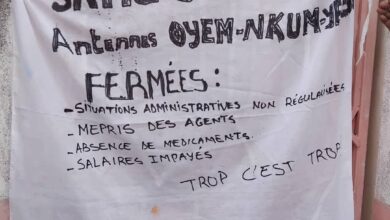 Antennes OYEM-NKUM-
FERMÉES :
- SITUATIONS ADMINISTRATIVES NON RÉGULARISÉES
- MEPRIS DES AGENTS
- ABSENCE DE MEDICAMENTS.
- SALAIRES IMPAYÉS
TROP C'EST TROP